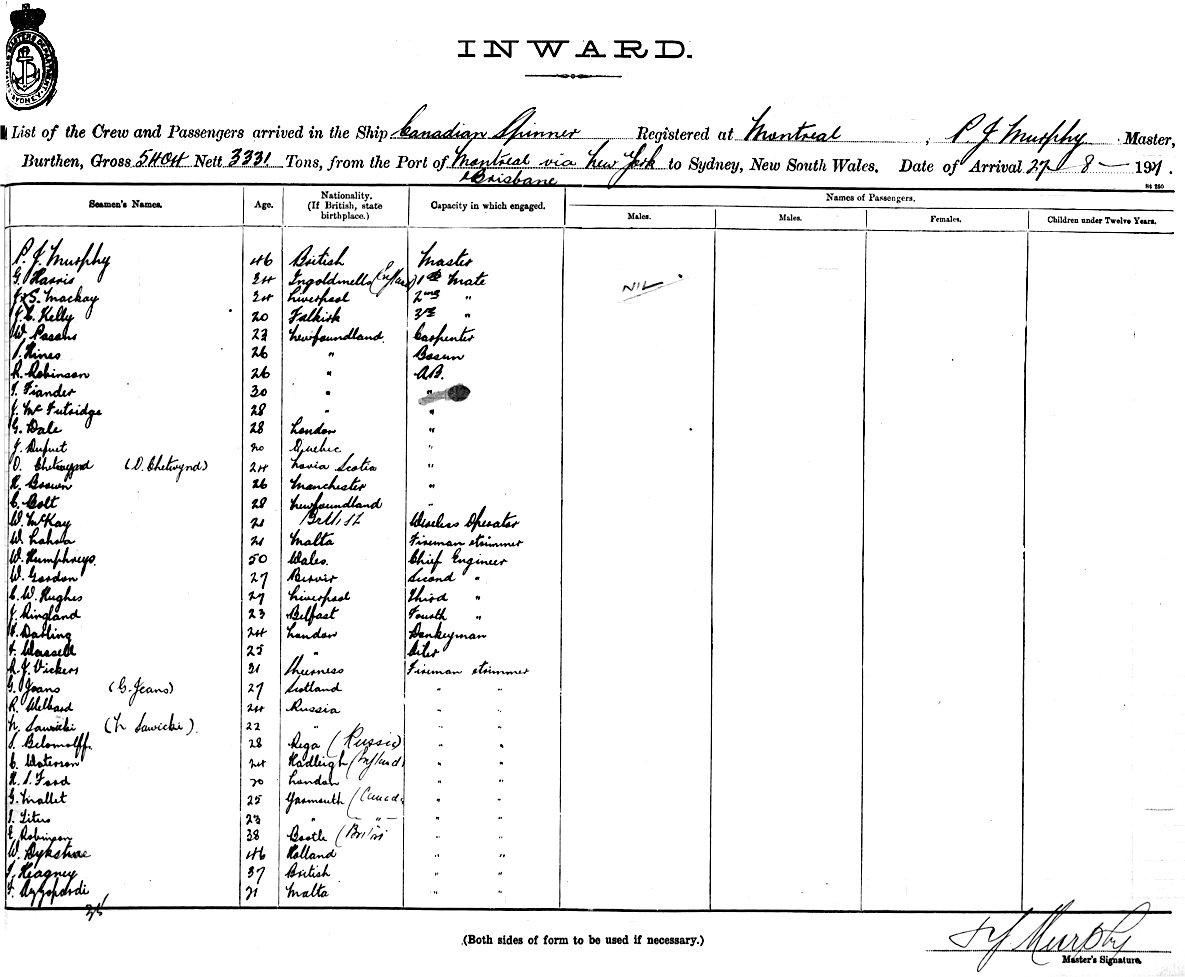 INWARD.
List of the Crew and Passengers arrived in the Ship Canadian Spinner Registered at Montreal , P J Murphy Master,
Burthen, Gross 5404 Nett 3331 Tons, from the Port of Montreal via New York to Sydney, New South Wales. Date of Arrival 27 - 8 - 1921.
& Brisbane
Seamen's Names. Age. Nationality. (If British, state birthplace.) Capacity in which engaged. Names of Passengers.
Males. Males. Females. Children under Twelve Years.
P. J. Murphy 46 British Master
G. Harris 34 Ingoldmells (England) 1st Mate NIL
J. S. Mackay 24 Liverpool 2nd "
J. C. Kelly 20 Falkirk 3rd "
W. 23 Newfoundland. Carpenter
Hines 26 " Bosun
R. Robinson 26 " A.B.
T. Fiander 30 " "
J. 28 " "
G. Dale 28 London "
J. 20 Quebec "
D. Chetwynd (D. Chetwynd) 24 Novia Scotia "
R. Brown 26 Manchester "
C. Bolt 28 Newfoundland "
W. McKay 21 British Wireless Operator
W. 21 Malta Fireman & trimmer
W. Humphreys. 50 Wales. Chief Engineer
W. Gordon 27 Second "
C. W. Hughes 27 Liverpool Third "
J. Ringland 23 Belfast Fourth "
Darling 24 London Donkeyman
Wassell 25 "
R. J. Vickers 31 Fireman & trimmer
G. Jeans (G. Jeans) 27 Scotland " "
R. 24 Russia " "
N. Sawicki (N Sawicki). 22 " " "
28 Riga (Russia) " "
C. Waterson 24 Hadleigh (England) " "
Ford 20 London " "
G. Mallet 25 Yarmouth (Canada " "
23 " " " "
E. Robinson 38 Bootle (British " "
W. Dykstrae 46 Holland " "
Heagney 37 British " "
Azzopardi 21 Malta " "
(Both sides of form to be used if necessary.)
P J Murphy
Master's Signature.